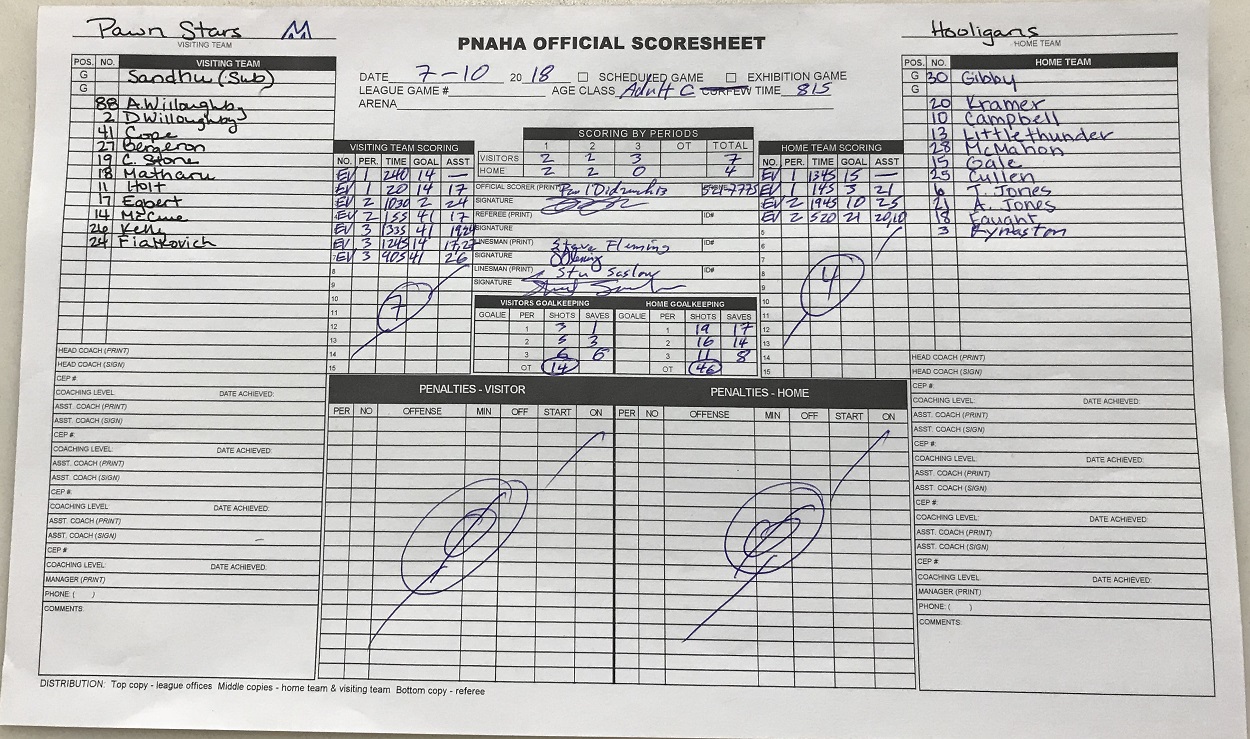 Pawn Stars
VISITING TEAM
PNAHA OFFICIAL SCORESHEET
Hooligans
HOME TEAM
DATE 7-10 2018 SCHEDULED GAME EXHIBITION GAME
LEAGUE GAME # AGE CLASS Adult C CURFEW TIME 815
ARENA
POS. NO. VISITING TEAM
G Sandhu (Sub)
G
88 A. Willoughby
2 D Willoughby
41 Cope
27 Bergeron
19 C. Stone
18 Matharu
11 Holt
17 Egbert
14 McCune
26 Kelly
24 Fialkovich
HEAD COACH (PRINT)
HEAD COACH (SIGN)
CEP #:
COACHING LEVEL: DATE ACHIEVED:
ASST. COACH (PRINT)
ASST. COACH (SIGN)
CEP #:
COACHING LEVEL: DATE ACHIEVED:
ASST. COACH (PRINT)
ASST. COACH (SIGN)
CEP #:
COACHING LEVEL: DATE ACHIEVED:
ASST. COACH (PRINT)
ASST. COACH (SIGN)
CEP #
COACHING LEVEL: DATE ACHIEVED:
MANAGER (PRINT)
PHONE: ( )
COMMENTS:
VISITING TEAM SCORING
NO. PER. TIME GOAL ASST
EV 1 240 14 —
EV 1 20 14 17
EV 2 1030 2 24
EV 2 155 41 17
EV 3 1335 41 19,24
EV 3 1245 14 17,27
7 EV 3 905 41 26
8
9
10
11
12
13
14
15
7
SCORING BY PERIODS
1 2 3 OT TOTAL
VISITORS 2 2 3 7
HOME 2 2 0 4
OFFICIAL SCORER (PRINT) 521-7775
SIGNATURE
REFEREE (PRINT) ID#
SIGNATURE
LINESMAN (PRINT) Steve Fleming ID#
SIGNATURE
LINESMAN (PRINT) Stu Saslow ID#
SIGNATURE
VISITORS GOALKEEPING HOME GOALKEEPING
GOALIE PER SHOTS SAVES GOALIE PER SHOTS SAVES
1 3 1 1 19 17
2 5 3 2 16 14
3 6 6 3 11 8
OT 14 OT 46
HOME TEAM SCORING
NO. PER. TIME GOAL ASST
EV 1 1345 15 —
EV 1 145 3 21
EV 2 1945 10 25
EV 2 520 21 20,10
5
6
7
8
9
10
11
12
13
14
15
4
POS. NO. HOME TEAM
G 30 Gibby
G
20 Kramer
10 Campbell
13 Littlethunder
28 McMahon
15 Gale
25 Cullen
6 T. Jones
21 A. Jones
18 Faught
3 Kynaston
HEAD COACH (PRINT)
HEAD COACH (SIGN)
CEP #:
COACHING LEVEL: DATE ACHIEVED:
ASST. COACH (PRINT)
ASST. COACH (SIGN)
CEP #:
COACHING LEVEL: DATE ACHIEVED:
ASST. COACH (PRINT)
ASST. COACH (SIGN)
CEP #:
COACHING LEVEL: DATE ACHIEVED:
ASST. COACH (PRINT)
ASST. COACH (SIGN)
CEP #
COACHING LEVEL: DATE ACHIEVED:
MANAGER (PRINT)
PHONE: ( )
COMMENTS:
PENALTIES - VISITOR PENALTIES - HOME
PER NO OFFENSE MIN OFF START ON PER NO OFFENSE MIN OFF START ON
DISTRIBUTION: Top copy - league offices Middle copies - home team & visiting team Bottom copy - referee